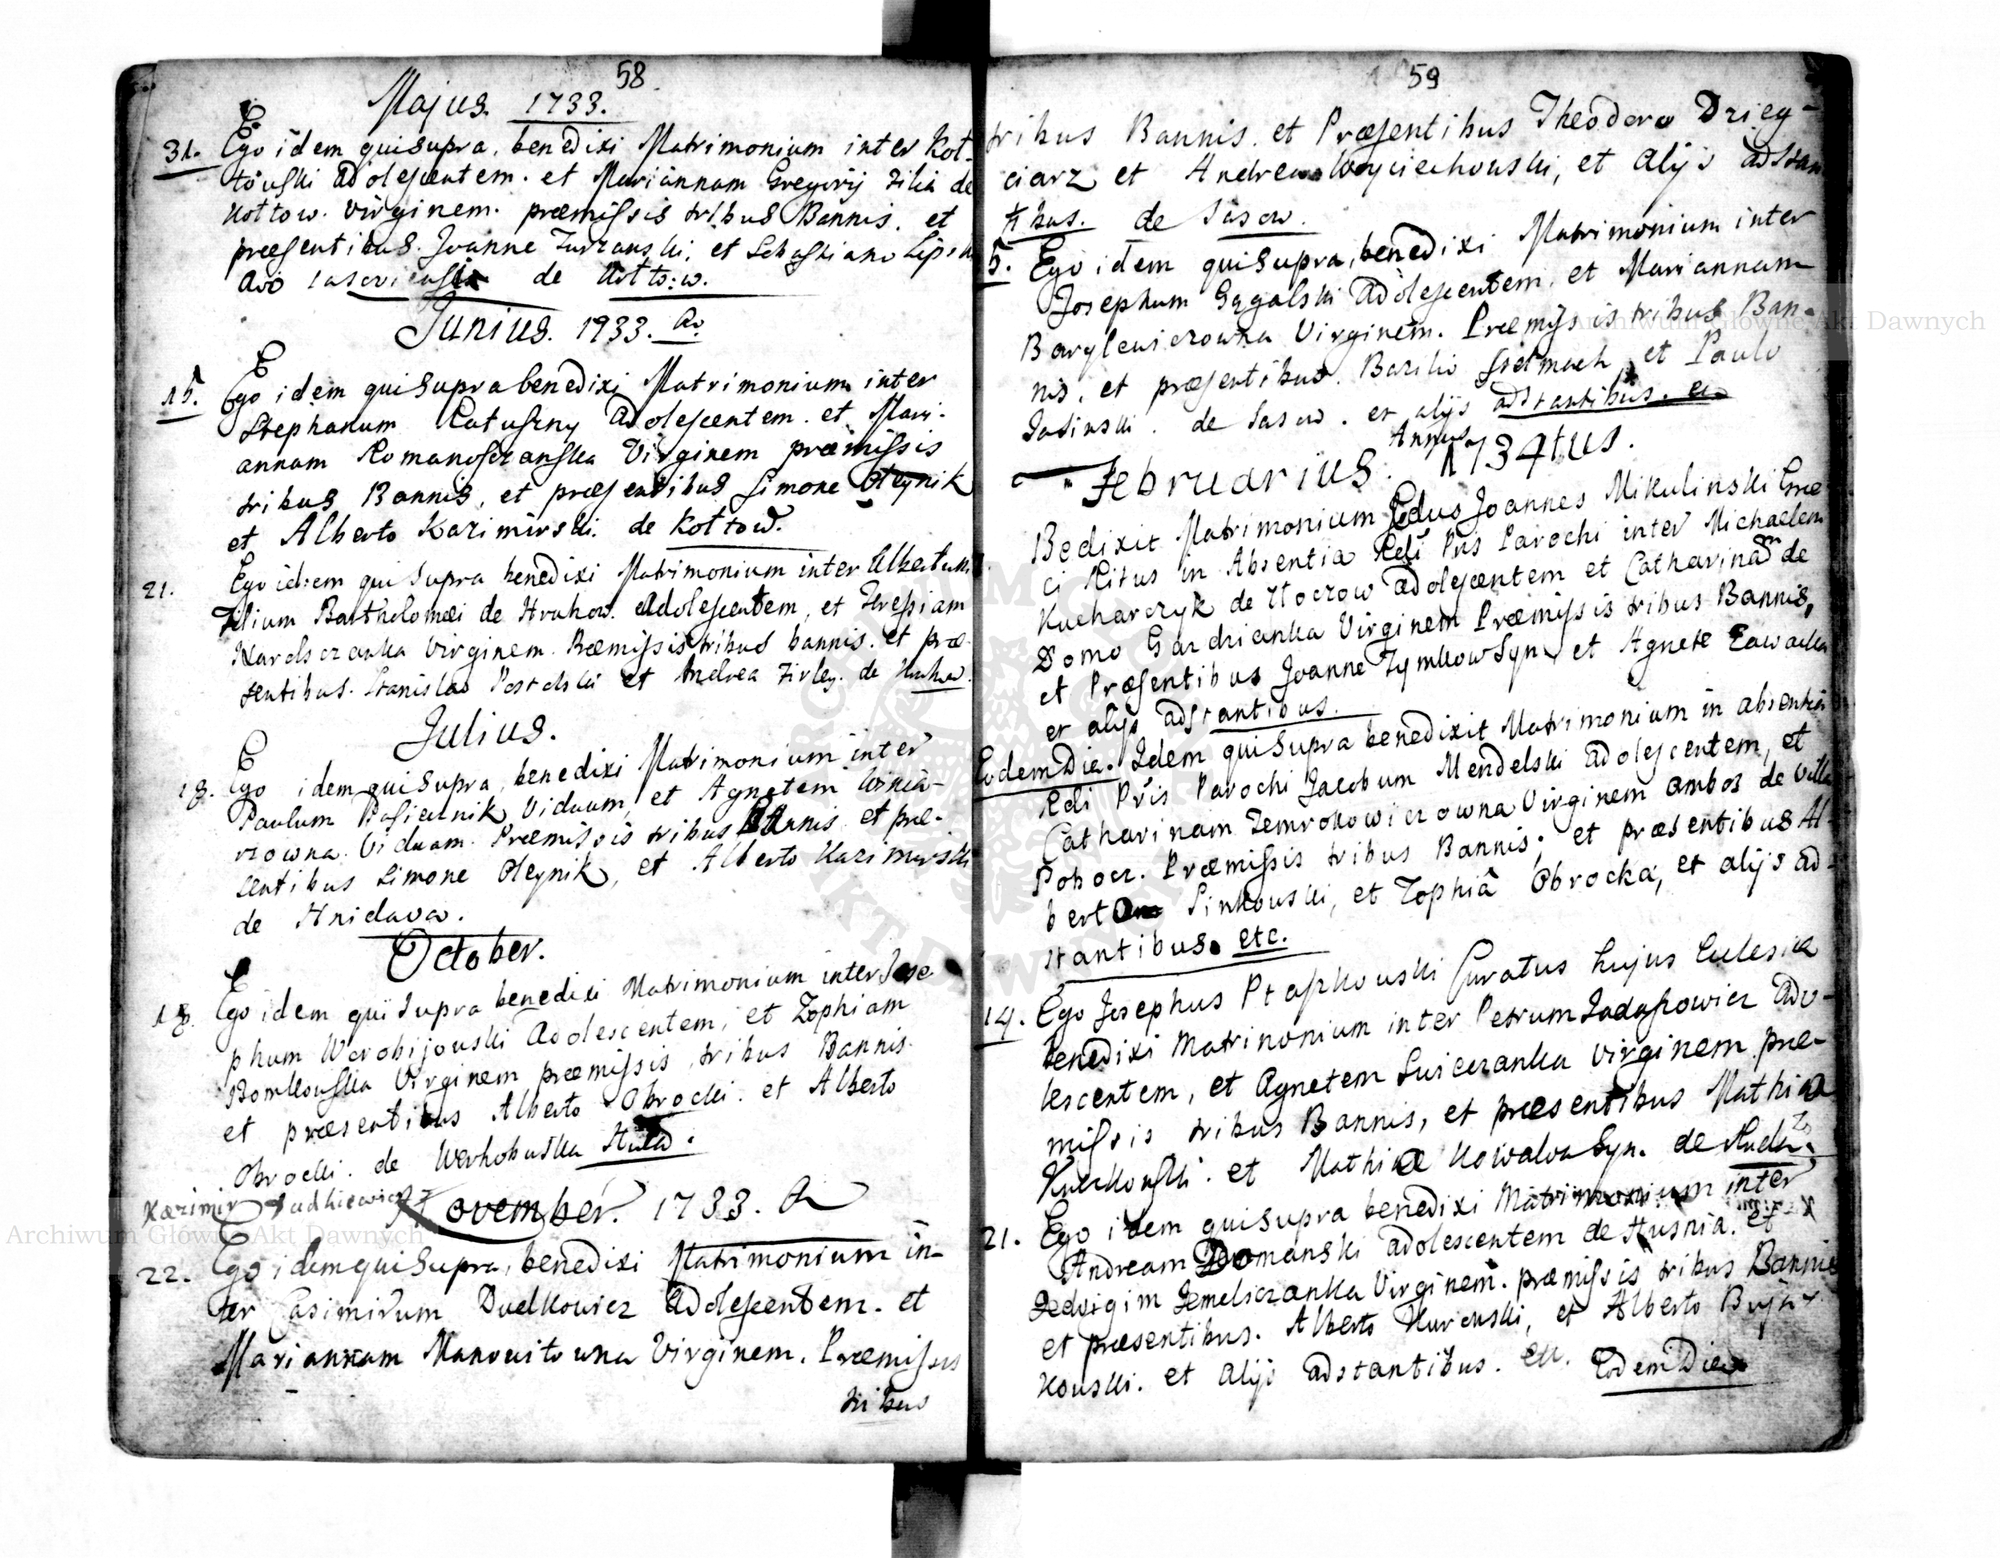 58
Majus. 1733.
31. Ego idem qui supra, benedixi Matrimonium inter Kot-
touski adolescentem. et Mariannam Gregorij Filia de
Kottow. Virginem. præmissis tribus Bannis. et
præsentibus. Joanne Turzanski, et Sebastiano Lipin
de Kotto:w.
Junius. 1933. Ao.
15. Ego idem qui supra benedixi Matrimonium inter
Stephanum Ratuszny adolescentem. et Mari-
annam Romanosczanska Virginem præmissis
tribus Bannis, et præsentibus Simone Oleynik
et Alberto Kazimirski. de Kottow.
21. Ego idem qui supra benedixi Matrimonium inter Albertum
Filium Bartholomæi de Hrukow. adolescentem, et Teressiam
Virginem. Præmissis tribus bannis. et præ-
sentibus. Stanislao et Andrea Firley. de
Julius.
18. Ego idem qui supra, benedixi Matrimonium inter
Paulum Pasiecznik Viduum, et Agnetem Winia-
rzowna. Viduam. Præmissis tribus Bannis et præ-
sentibus Simone Oleynik, et Alberto Kazimirski
de Hnidava.
October.
18. Ego idem qui supra benedixi Matrimonium inter Jose
phum Worobijouski Adolescentem, et Zophiam
Bomkouska Virginem præmissis tribus Bannis.
et præsentibus Alberto Obrocki. et Alberto
Obrocki. de Werhobuska Huta.
Kazimir Dudkiewicz
November. 1733. A
22. Ego idem qui supra, benedixi Matrimonium in-
ter Casimirum Dudkowicz Adolescentem. et
Mariannam Virginem. Præmissis
tribus
59
tribus Bannis. et Præsentibus Theodoro Drieg-
ciarz et Andrea Woyciechouski, et Alijs adstan
tibus. de Sasow.
5. Ego idem qui supra, benedixi Matrimonium inter
Josephum Gągalski adolescentem, et Mariannam
Barylewiczowna Virginem. Præmissis tribus Ban-
nis. et præsentibus. Bazilio Stelmach et Paulo
Jasinski. de Sasow. et alijs adstantibus. etc
Annus
Februarius. 1734tus.
Bedixit Matrimonium Rdus Joannes Mikulinski Græ-
ci Ritus in Absentia Rdi Pris Parochi inter Michaelem
Kucharczyk de Uoczow adolescentem et Catharinam de
Domo Gardzianka Virginem Præmissis tribus Bannis,
et Præsentibus Joanne Tymkow Syn, et Agnete Zawacka
et alijs adstantibus.
Eodem Die. Idem qui supra benedixit Matrimonium in absentia
Rdi Pris Parochi Jacobum Mendelski adolescentem, et
Catharinam Zemrokowiczowna Virginem ambos de Villa
Pohocz. Præmissis tribus Bannis, et præsentibus Al-
berto Sinkouski, et Zophiâ Obrocka, et alijs ad-
stantibus. etc.
14. Ego Josephus Ptaszkouski Curatus hujus Eclesiæ
benedixi Matrinonium inter Petrum Sadassowicz ado-
lescentem, et Agnetem Suiczeranka Virginem. præ-
missis tribus Bannis, et præsentibus Mathia
et Mathia Kowalow Syn. de Ruda.
21. Ego idem qui supra benedixi Matrimonium inter
Andream Domanski adolescentem de Husnia. et
Jedvigim Jemelczanka Virginem. præmissis tribus Bannis
et præsentibus. Alberto Kurouski, et Alberto Bujar-
kouski. et alijs adstantibus. etc. Eodem Die
Archiwum Główne Akt Dawnych